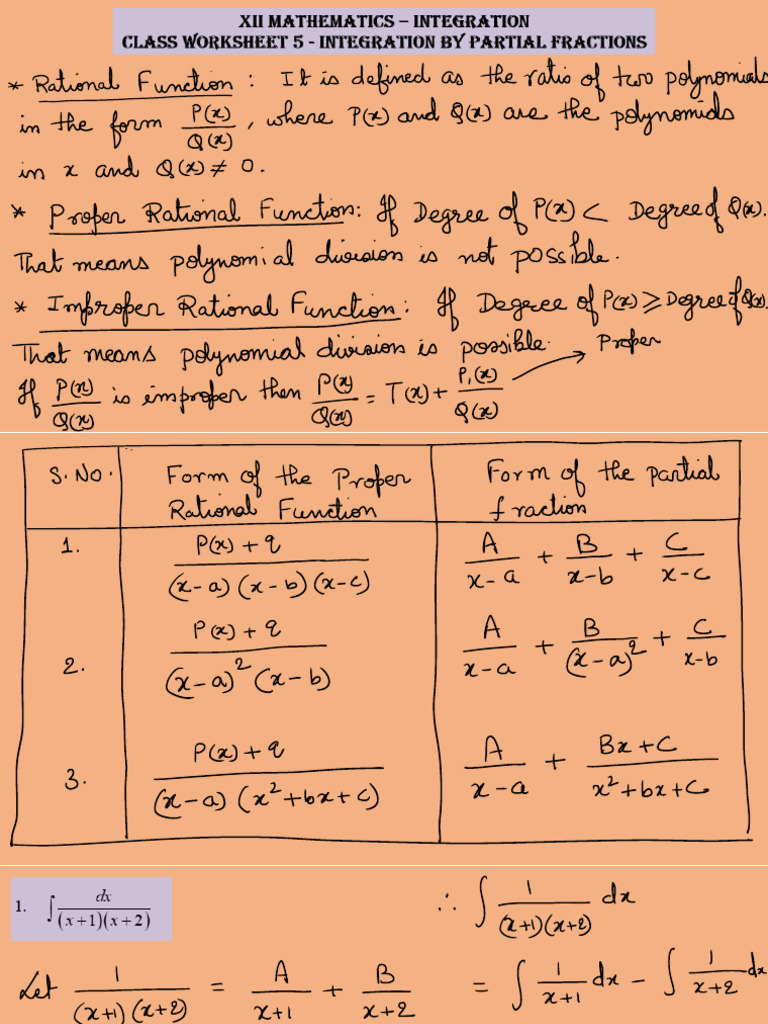 XII MATHEMATICS – INTEGRATION
CLASS WORKSHEET 5 - INTEGRATION BY PARTIAL FRACTIONS
* Rational Function : It is defined as the ratio of two polynomials
in the form P(x)/Q(x), where P(x) and Q(x) are the polynomials
in x and Q(x) ≠ 0.
* Proper Rational Function: If Degree of P(x) < Degree of Q(x).
That means polynomial division is not possible.
* Improper Rational Function: If Degree of P(x) ≥ Degree of Q(x).
That means polynomial division is possible.
If P(x)/Q(x) is improper then P(x)/Q(x) = T(x) + P₁(x)/Q(x) → Proper
S. No. Form of the Proper Rational Function Form of the partial fraction
1. (P(x) + q)/((x-a)(x-b)(x-c)) A/(x-a) + B/(x-b) + C/(x-c)
2. (P(x) + q)/((x-a)²(x-b)) A/(x-a) + B/(x-a)² + C/(x-b)
3. (P(x) + q)/((x-a)(x²+bx+c)) A/(x-a) + (Bx+C)/(x²+bx+c)
1. ∫ dx/((x+1)(x+2))
Let 1/((x+1)(x+2)) = A/(x+1) + B/(x+2)
∴ ∫ 1/((x+1)(x+2)) dx
= ∫ 1/(x+1) dx − ∫ 1/(x+2) dx